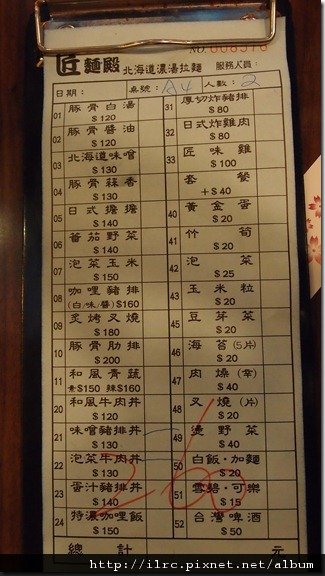 匠 麵殿 北海道濃湯拉麵
NO.
服務人員:
日期: 桌號: A4 人數: 2
01 豚骨白湯 $120
02 豚骨醬油 $120
03 北海道味噌 $130
04 豚骨蒜香 $130
05 日式擔擔 $140
06 蕃茄野菜 $140
07 泡菜玉米 $150
08 咖哩豬排 (白/味/醬) $160
09 炙烤叉燒 $180
10 豚骨肋排 $200
11 和風青蔬 素$150 辣$160
20 和風牛肉丼 $120
21 味噌豬排丼 $130
22 泡菜牛肉丼 $130
23 蛋汁豬排丼 $140
24 特濃咖哩飯 $150
31 厚切炸豬排 $80
32 日式炸雞肉 $80
33 匠味雞 $100
套餐 +$40
40 黃金蛋 $20
41 竹筍 $20
42 泡菜 $25
43 玉米粒 $20
45 豆芽菜 $20
46 海苔(5片) $20
47 肉燥(辛) $40
48 叉燒(片) $20
49 燙野菜 $40
50 白飯·加麵 $20
51 雪碧·可樂 $15
52 台灣啤酒 $50
總計 元
260
http://ilrc.pixnet.net/album